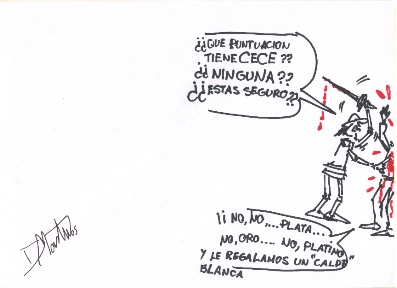 ¿¿QUE PUNTUACION
TIENE CECE ??
¿¿ NINGUNA ??
¿¿ ESTAS SEGURO??
¡¡ NO, NO, .... PLATA...
NO, ORO.... NO, PLATINO
Y LE REGALAMOS UN "CALDO"
BLANCA